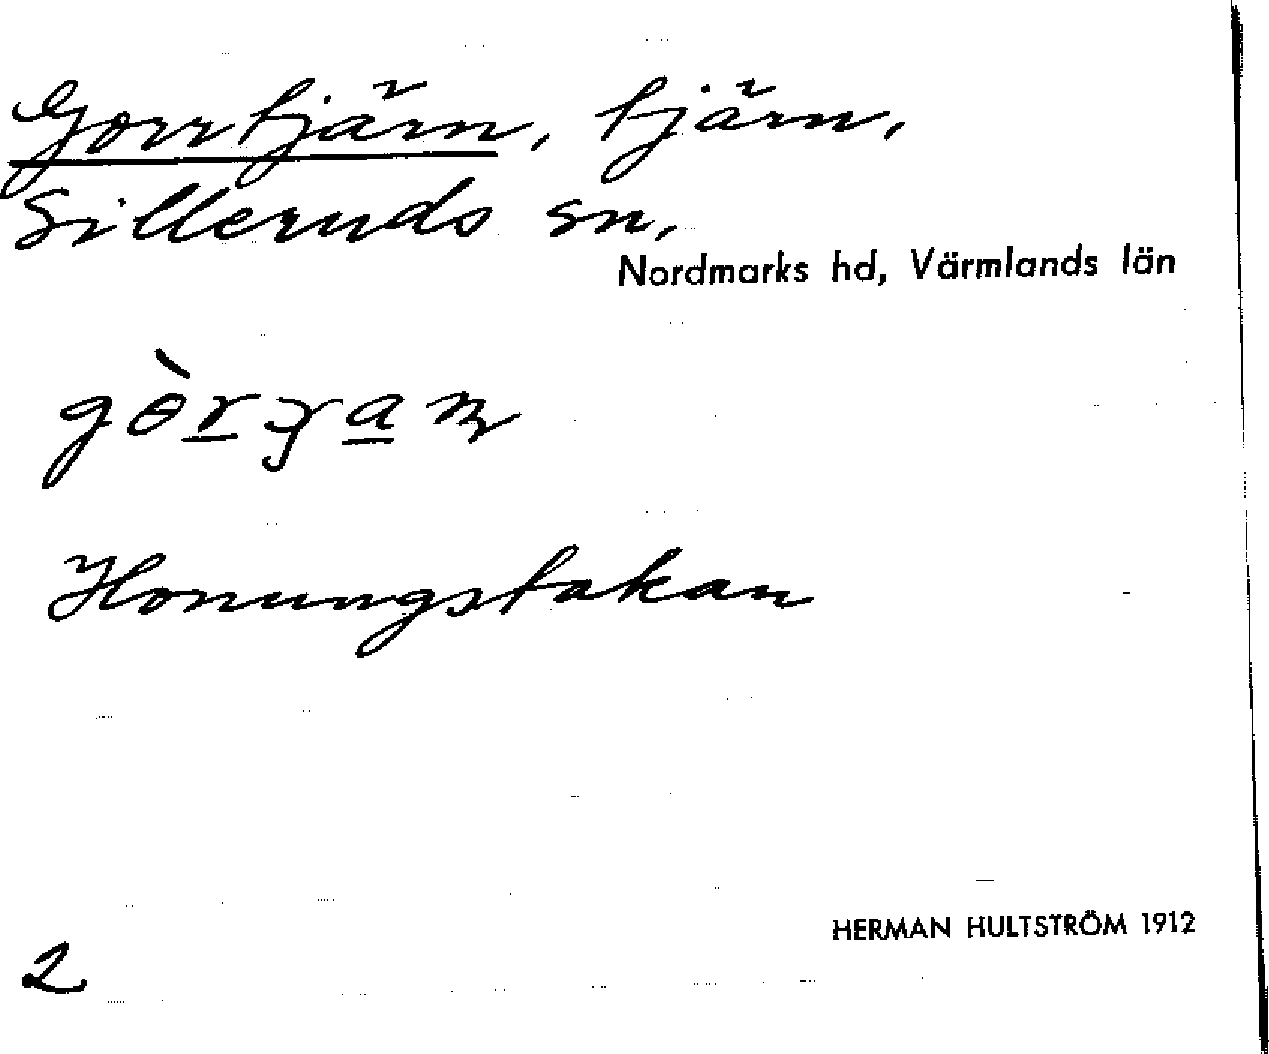 Gorrtjärn, tjärn,
Silleruds sn,
Nordmarks hd, Värmlands län
Honungstakan
HERMAN HULTSTRÖM 1912
2